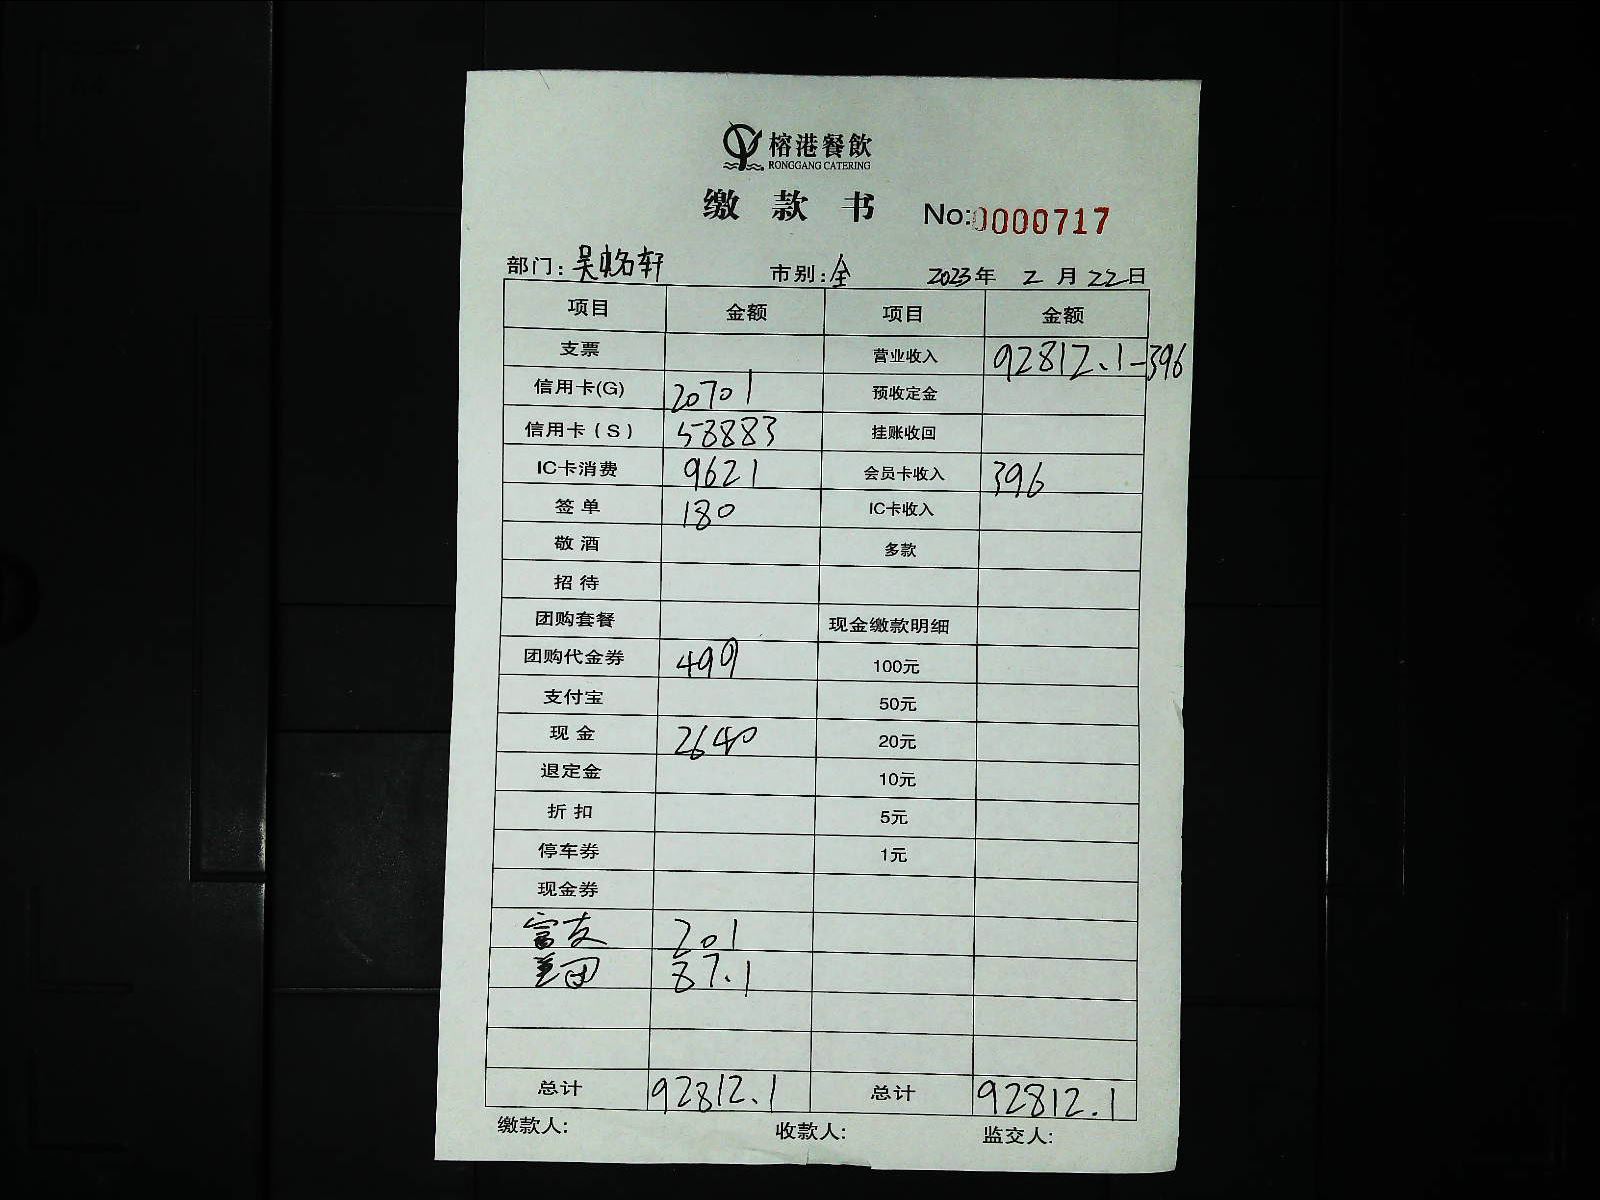 榕港餐飲
RONGGANG CATERING
缴 款 书 No:0000717
部门: 吴铭轩 市别: 全 2023年 2月22日
项目 金额 项目 金额
支票 营业收入 92812.1-396
信用卡(G) 20701 预收定金
信用卡(S) 58883 挂账收回
IC卡消费 9621 会员卡收入 396
签单 180 IC卡收入
敬酒 多款
招待
团购套餐 现金缴款明细
团购代金券 499 100元
支付宝 50元
现金 2640 20元
退定金 10元
折扣 5元
停车券 1元
现金券
富友 201
美团 87.1
总计 92812.1 总计 92812.1
缴款人: 收款人: 监交人: